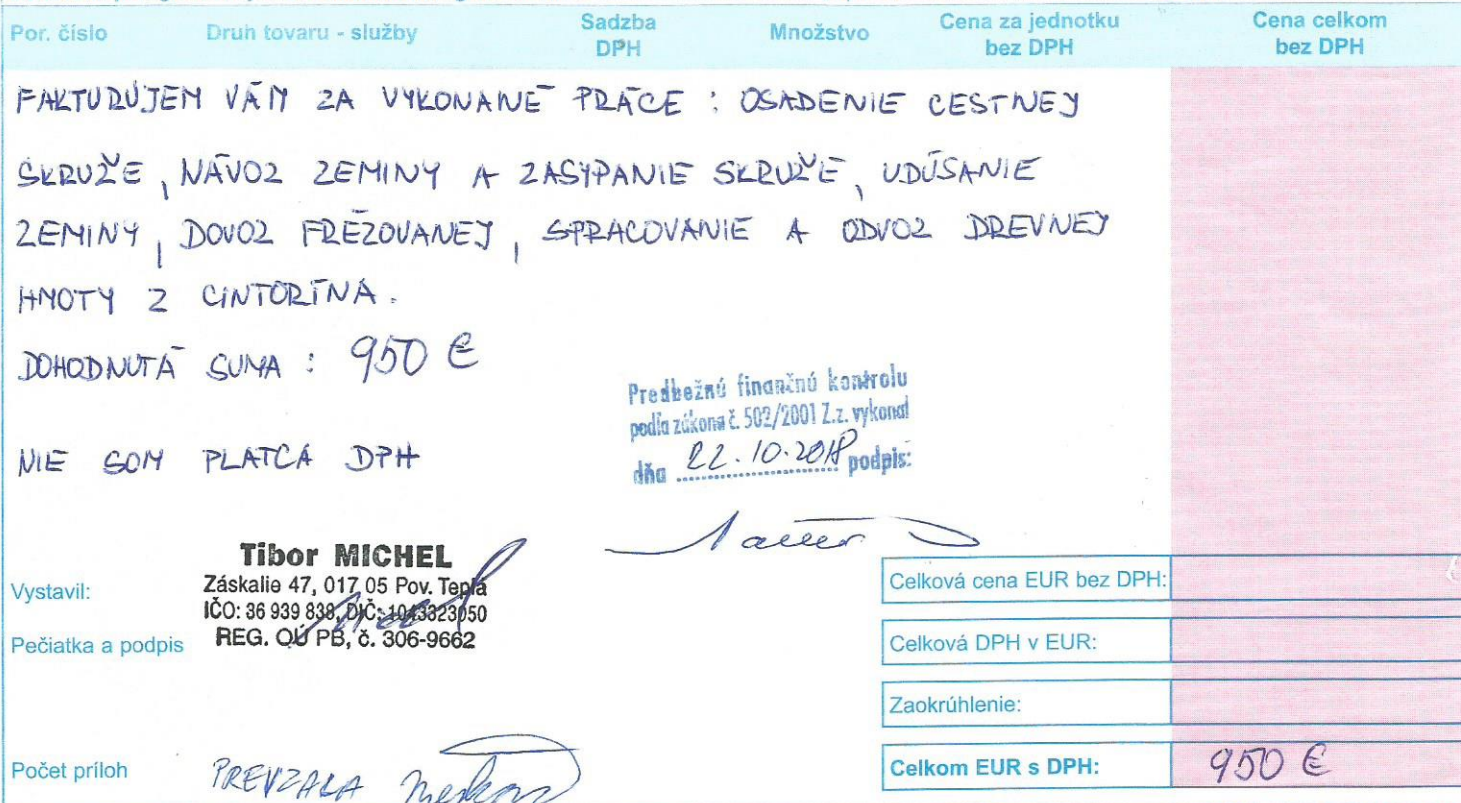 Por. číslo Druh tovaru - služby Sadzba DPH Množstvo Cena za jednotku bez DPH Cena celkom bez DPH
FAKTURUJEM VÁM ZA VYKONANÉ PRÁCE : OSADENIE CESTNEJ
SKRUŽE, NÁVOZ ZEMINY A ZASYPANIE SKRUŽE, UDÚSANIE
ZEMINY, DOVOZ FRÉZOVANEJ, SPRACOVANIE A ODVOZ DREVNEJ
HMOTY Z CINTORÍNA.
DOHODNUTÁ SUMA : 950 €
Predbežnú finančnú kontrolu
podľa zákona č. 502/2001 Z.z. vykonal
dňa 22.10.2018 podpis:
NIE SOM PLATCA DPH
Tibor MICHEL
Záskalie 47, 017 05 Pov. Teplá
IČO: 36 939 838, DIČ: 1043323050
REG. OÚ PB, č. 306-9662
Vystavil:
Pečiatka a podpis
Celková cena EUR bez DPH:
Celková DPH v EUR:
Zaokrúhlenie:
Celkom EUR s DPH: 950 €
Počet príloh
PREVZALA